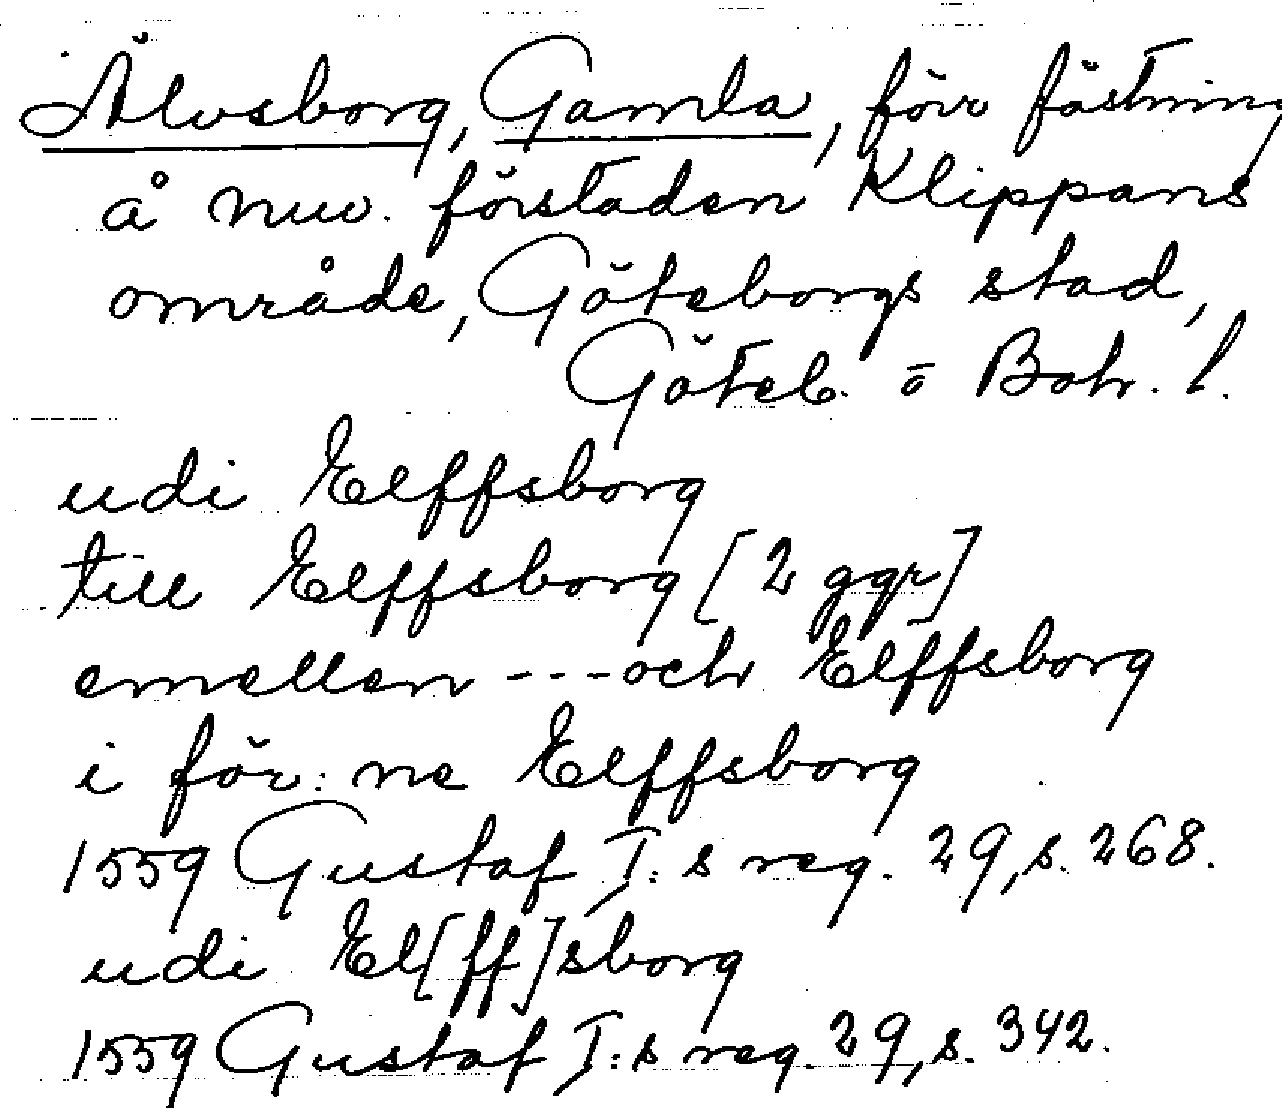 Älvsborg, Gamla, förr fästning
å nuv. förstaden Klippans
område, Göteborgs stad,
Göteb. o Boh. l.
udi Elffsborg
till Elffsborg [2 ggr]
emellen --- och Elffsborg
i för:ne Elffsborg
1559 Gustaf I:s reg. 29, s. 268.
udi El[ff]sborg
1559 Gustaf I:s reg. 29, s. 342.